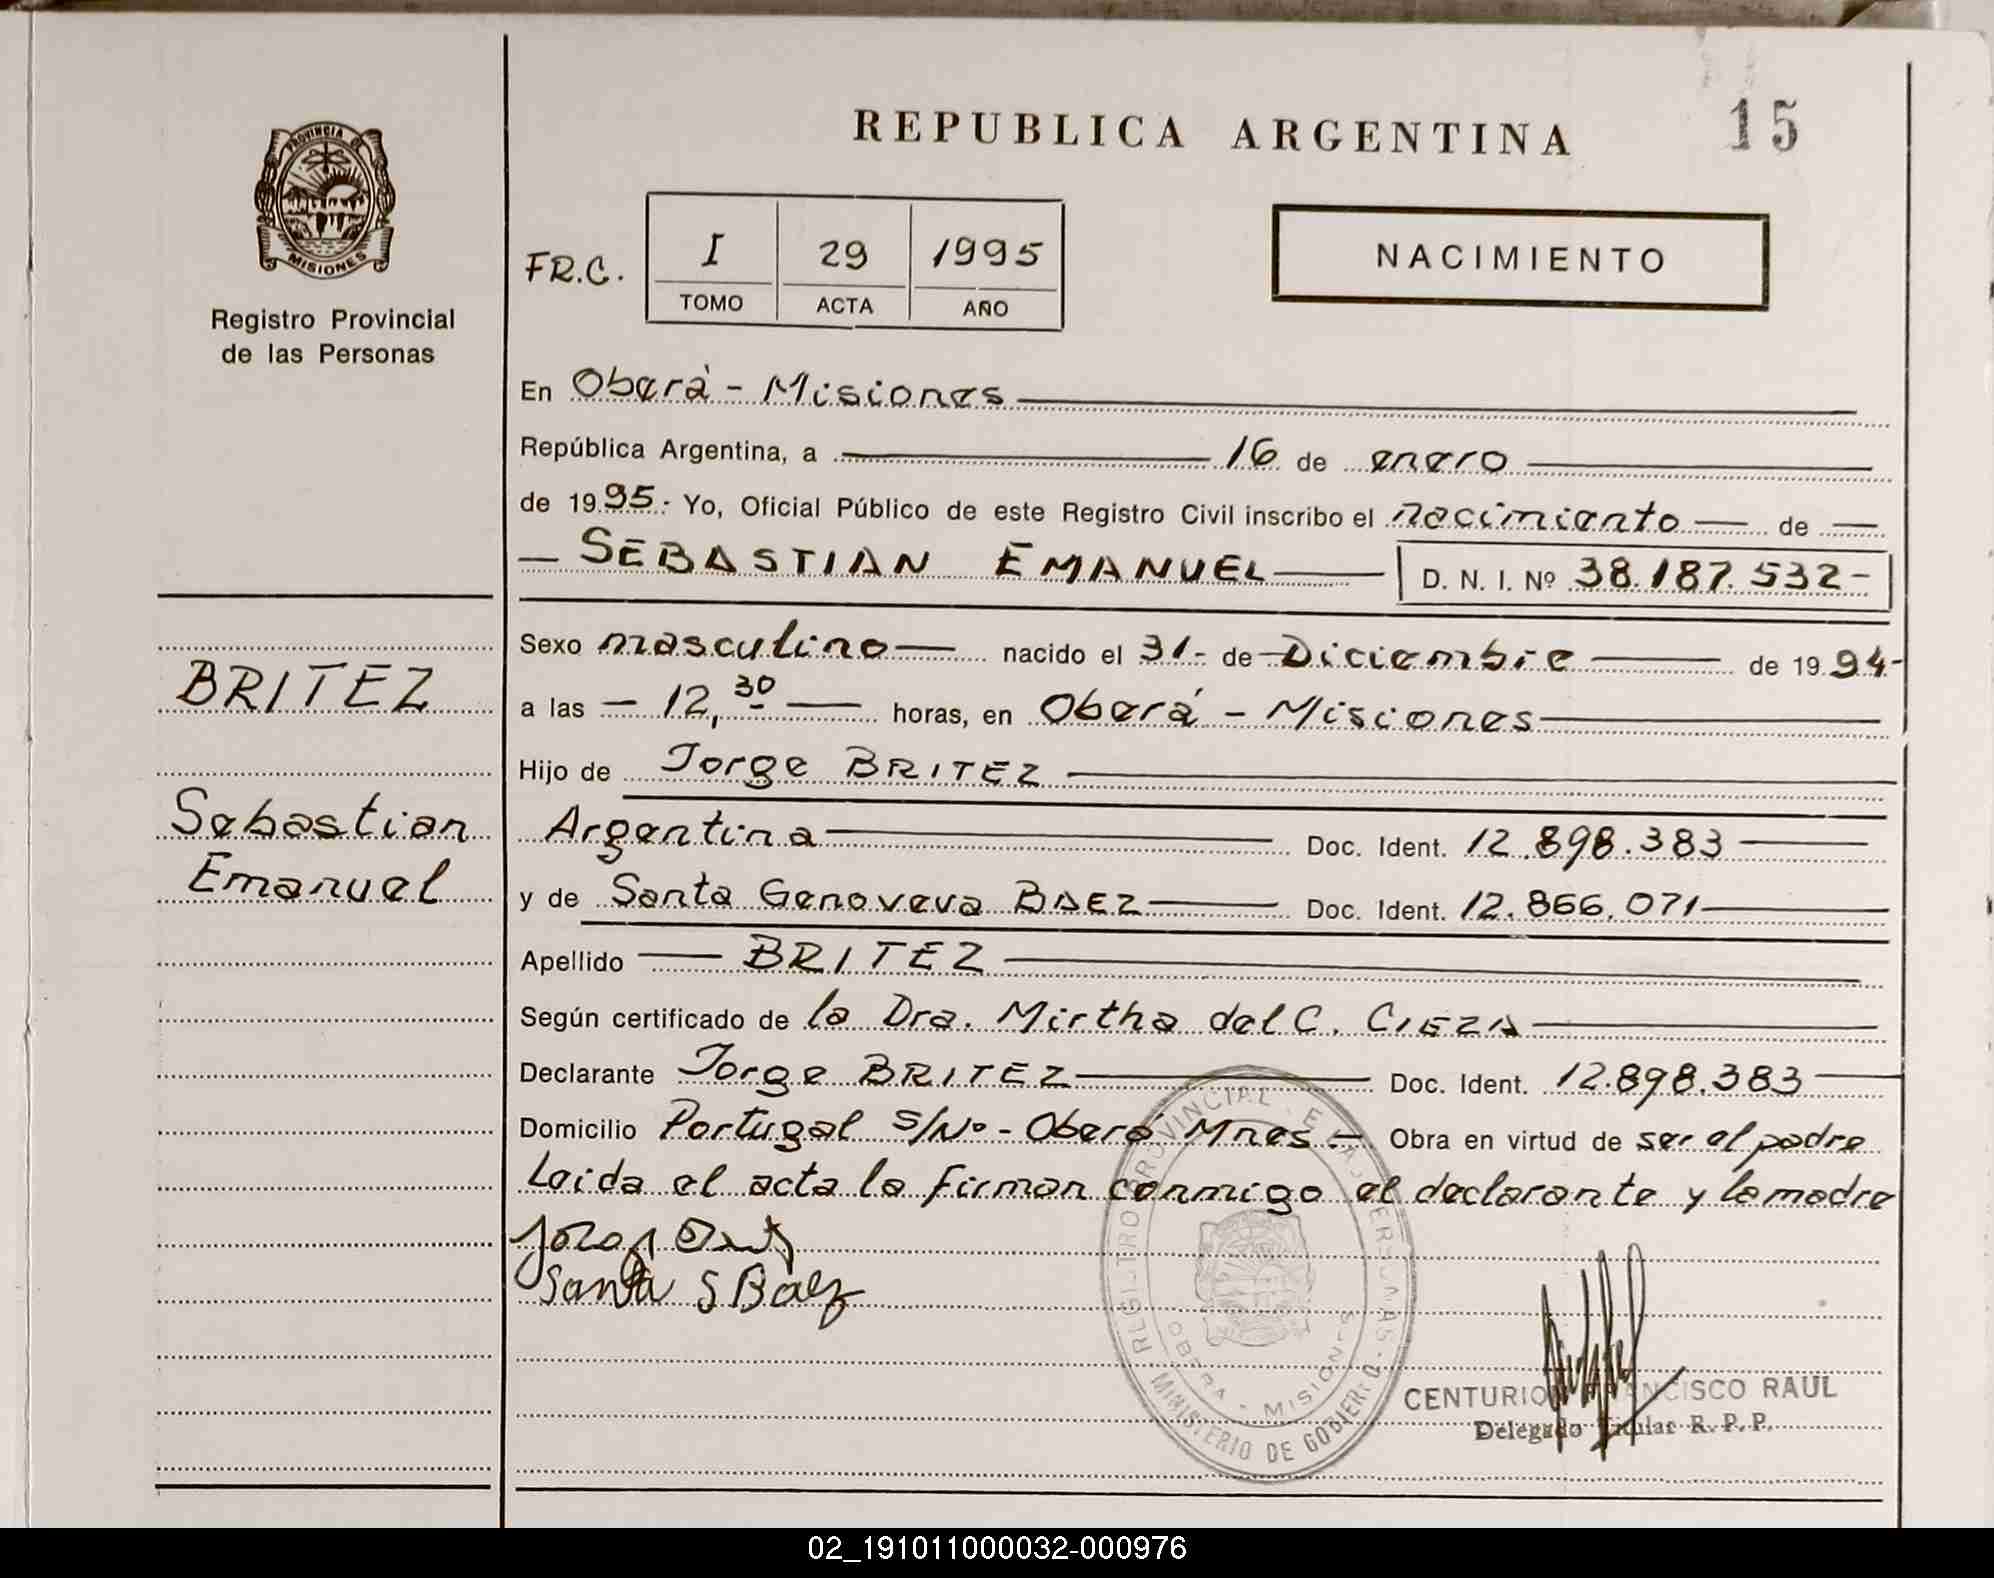 PROVINCIA DE
MISIONES
Registro Provincial
de las Personas
BRITEZ
Sebastian
Emanuel
REPUBLICA ARGENTINA
15
FR.C.
I 29 1995
TOMO ACTA AÑO
NACIMIENTO
En Oberá - Misiones
República Argentina, a 16 de enero
de 1995.- Yo, Oficial Público de este Registro Civil inscribo el nacimiento de
SEBASTIAN EMANUEL D. N. I. Nº 38.187.532-
Sexo masculino nacido el 31- de Diciembre de 1994-
a las 12,30 horas, en Oberá - Misiones
Hijo de Jorge BRITEZ
Argentina Doc. Ident. 12.898.383
y de Santa Genoveva BAEZ Doc. Ident. 12.866.071
Apellido BRITEZ
Según certificado de la Dra. Mirtha del C. CIEZA
Declarante Jorge BRITEZ Doc. Ident. 12.898.383
Domicilio Portugal S/Nº - Oberá Mnes - Obra en virtud de ser el padre
Leida el acta la firman conmigo el declarante y la madre
Santa G Baez
REGISTRO PROVINCIAL DE LAS PERSONAS
OBERA - MISIONES
MINISTERIO DE GOBIERNO
CENTURION FRANCISCO RAUL
Delegado Titular R. P. P.
02_191011000032-000976